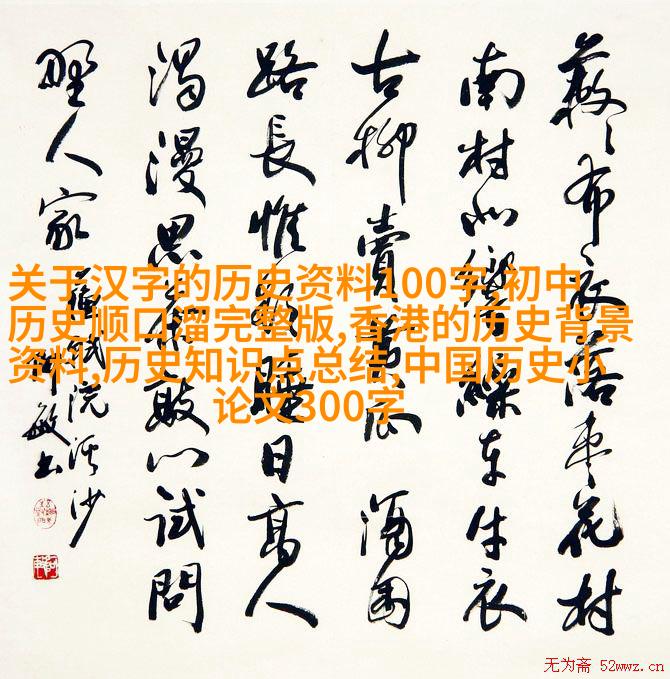 关于汉字的历史资料100字,初中
历史顺口溜完整版,香港的历史背景
资料,历史知识点总结,中国历史小
论文300字
衣落枣花村
南村北響繰車牛衣
古柳賣黃瓜 酒困
路長惟欲睡日高人
渴漫思茶敲門試問
野人家 蘇軾浣溪沙
敏书
无为斋 52wwz.cn